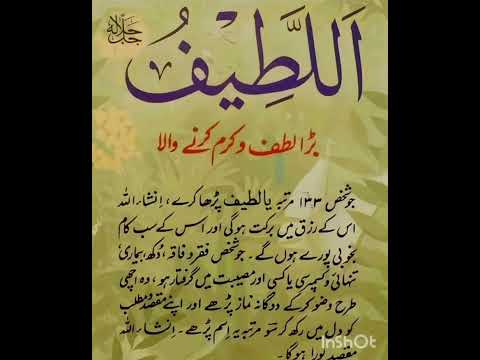 جل جلالہ
اَللَّطِیْفُ
بڑا لطف و کرم کرنے والا
جو شخص ۱۳۳ مرتبہ یا لطیف پڑھا کرے، اِنشاءاللہ
اس کے رزق میں برکت ہوگی اور اس کے سب کام
بخوبی پورے ہوں گے۔ جو شخص فقر و فاقہ، دُکھ، بیماری،
تنہائی و کسمپرسی یا کسی اور مصیبت میں گرفتار ہو، وہ اچھی
طرح وضو کرکے دوگانہ نماز پڑھے اور اپنے مقصد و مطلب
کو دل میں رکھ کر سَو مرتبہ یہ اِسم پڑھے۔ اِنشاءاللہ
مقصد پورا ہوگا۔
InShOt